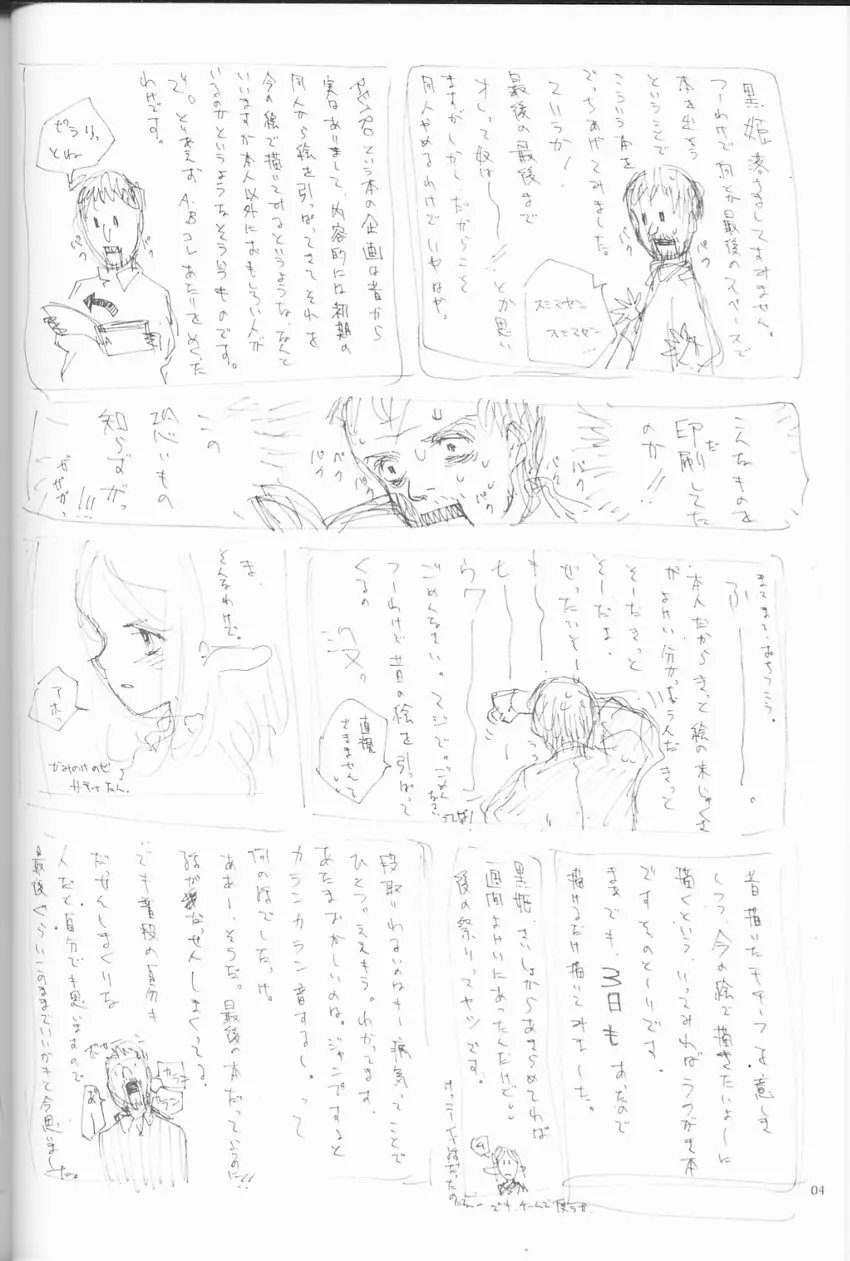 黒姫落としてすみません。
つーわけで何とか最後のスペースで
本を出そう
ということで
こういう本を
でっちあげてみました。
ていうか!
最後の最後まで
オレって奴はーー!!とか思い
ますがしかし、だからこそ
同人やめるわけで いやはや。
スミマセン
スミマセン
パク
パク
という本の企画は昔から
実はありまして、内容的には初期の
同人から絵を引っぱってきてそれを
今の絵で描いてみるというような、なんて
いいますか本人以外におもしろい人が
いるのかというようなそういうものです。
で。とりあえず A・Bコレあたりをめくった
わけです。
ピラリっ
とねー
パク
パク
A
こんなものを
印刷してた
だ
のか!!
パク
パク
パク
パク
この
恐いもの
知らずがっ
!!!
ガガガっ
まてまて、おちつこう。
ふーーー。
本人だからきっと絵の未じゅくさ
がよけい分かっちゃうんだ きっと
そーだきっと
そーだよ。
ぜったいそー
も
ウワ
ごめんなさい。マジで。ごめんなさいってば!
つーわけで昔の絵を引っぱって
くるの
没っ
直視
できませんて
ま、
そんなわけで。
アホっ
昔描いたモチーフを意しき
しつつ、今の絵で描きたいよーに
描くという、いってみればラクガキ本
です そのとーりです。
まあでも、3日もあったので
描けるだけ描いてみました。
黒姫、さいしょからあきらめてれば
一週間よけいにあったんだけど。
後の祭りってヤツです。
でも、ゲームで使うか
段取りわるいのはもー病気ってことで
ひとつ。ええもう。わかってます。
あたまおかしいのは。ジャンプすると
カランカラン音するし。って
何の話でしたっけ。
ああー、そうだ。最後の本だっていうのに!!
話がだっせんしまくってる。
でも普段の自分も
だっせんしまくりな
人だと自分でも思いますので
最後ぐらいこのままでいいかもと今思いました。
カラン
カラン
04